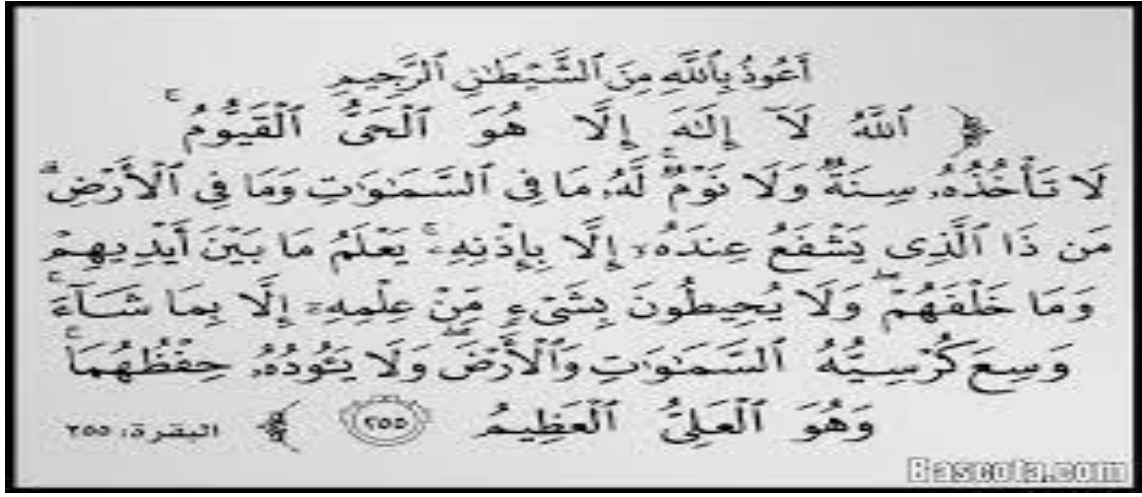 أَعُوذُ بِٱللَّهِ مِنَ ٱلشَّيْطَٰنِ ٱلرَّجِيمِ
﴿ ٱللَّهُ لَآ إِلَٰهَ إِلَّا هُوَ ٱلْحَىُّ ٱلْقَيُّومُ ۚ
لَا تَأْخُذُهُۥ سِنَةٌ وَلَا نَوْمٌ ۚ لَّهُۥ مَا فِى ٱلسَّمَٰوَٰتِ وَمَا فِى ٱلْأَرْضِ ۗ
مَن ذَا ٱلَّذِى يَشْفَعُ عِندَهُۥٓ إِلَّا بِإِذْنِهِۦ ۚ يَعْلَمُ مَا بَيْنَ أَيْدِيهِمْ
وَمَا خَلْفَهُمْ ۖ وَلَا يُحِيطُونَ بِشَىْءٍ مِّنْ عِلْمِهِۦٓ إِلَّا بِمَا شَآءَ ۚ
وَسِعَ كُرْسِيُّهُ ٱلسَّمَٰوَٰتِ وَٱلْأَرْضَ ۖ وَلَا يَـُٔودُهُۥ حِفْظُهُمَا ۚ
وَهُوَ ٱلْعَلِىُّ ٱلْعَظِيمُ ٢٥٥ ﴾ البقرة: ٢٥٥
Bascota.com